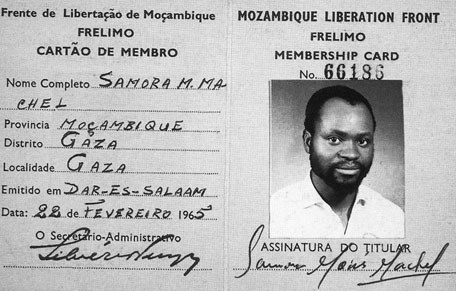 Frente de Libertação de Moçambique
FRELIMO
CARTÃO DE MEMBRO
Nome Completo SAMORA M. MA
CHEL
Provincia MOÇAMBIQUE
Distrito GAZA
Localidade GAZA
Emitido em DAR-ES-SALAAM
Data: 22 de FEVEREIRO 1965
O Secretário-Administrativo
MOZAMBIQUE LIBERATION FRONT
FRELIMO
MEMBERSHIP CARD
No. 66186
ASSINATURA DO TITULAR
Samora Moises Machel